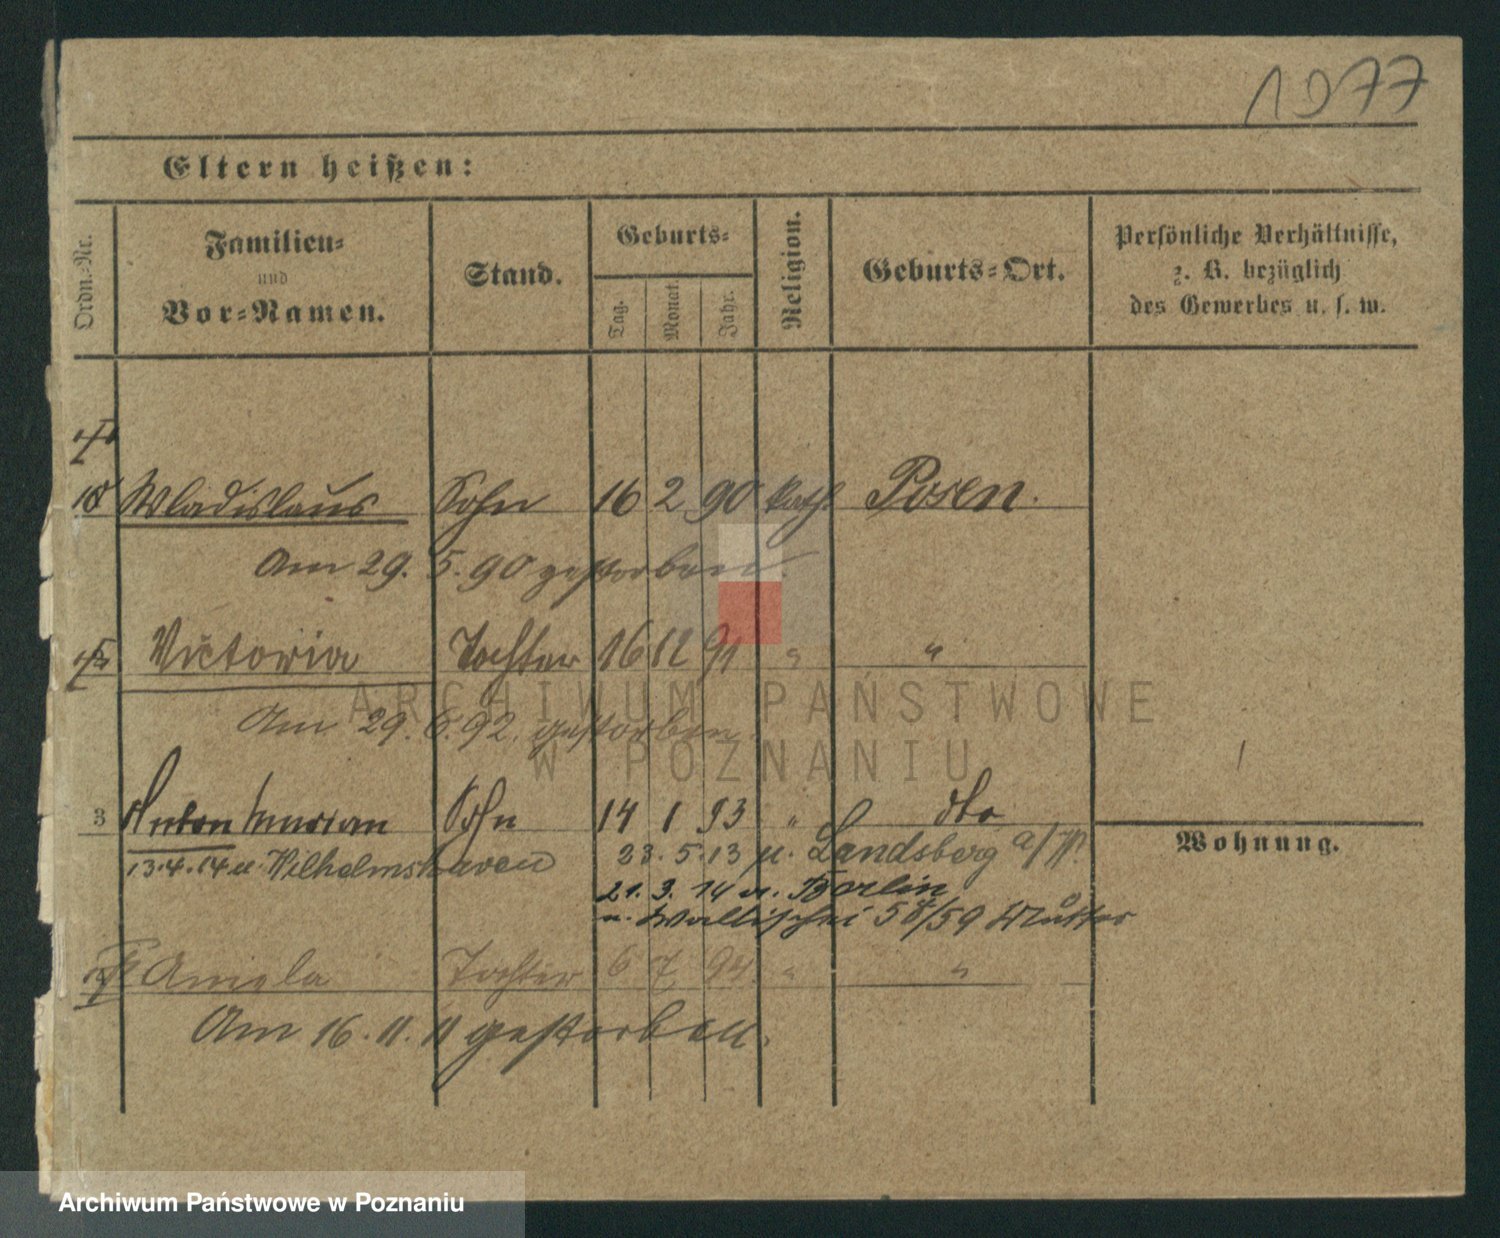 1977
Eltern heißen:
Ordn.-Nr.
Familien-
und
Vor-Namen.
Stand.
Geburts-
Tag.
Monat.
Jahr.
Religion.
Geburts-Ort.
Persönliche Verhältnisse,
z. B. bezüglich
des Gewerbes u. s. w.
Wladislaus Sohn 16 2 90 kath. Posen.
Am 29. 5. 90 gestorben.
Victoria Tochter 16 12 91 " "
Am 29. 6. 92. gestorben.
3 Anton Marian Sohn 14 1 93 " dto
Wohnung.
13.4.14 n. Wilhelmshaven 23. 5. 13 n. Landsberg a/W.
21. 3. 14 n. Berlin
n. Wallischei 58/59 Mutter
Aniela Tochter 6 7 94. " "
Am 16. 11. 11 gestorben.
ARCHIWUM PAŃSTWOWE
W POZNANIU
Archiwum Państwowe w Poznaniu